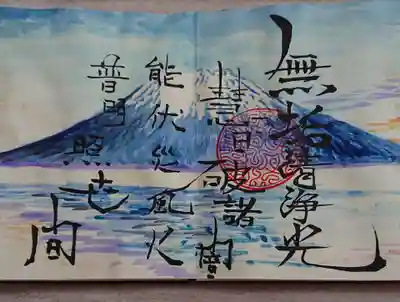 無垢清浄光
慧日破諸闇
能伏災風火
普門照世間